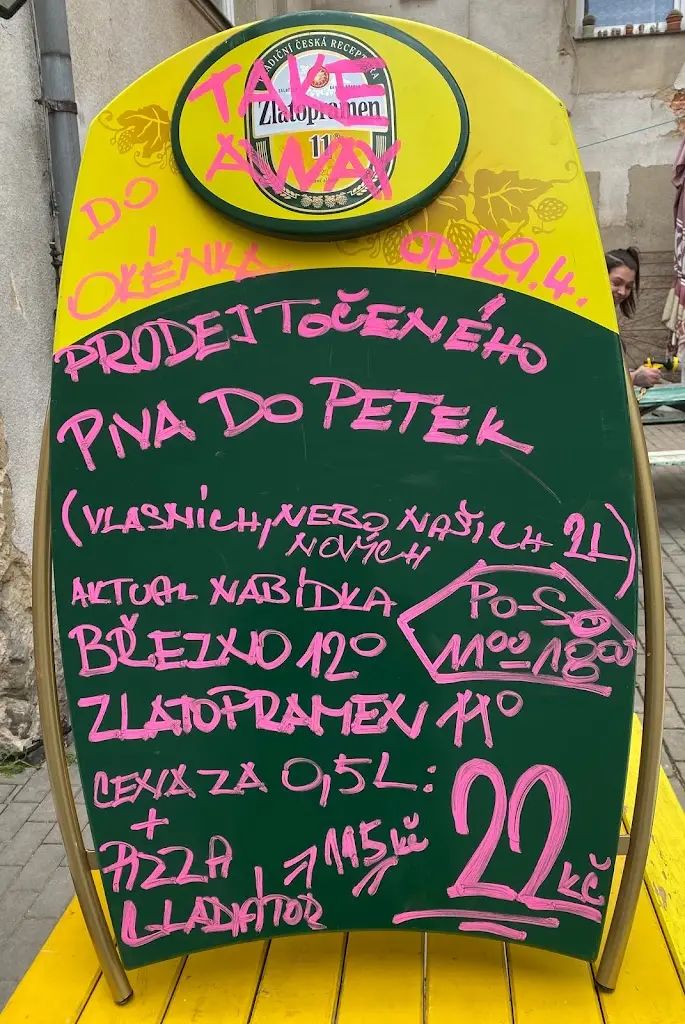 TRADIČNÍ ČESKÁ RECEPTURA
Zlatopramen
11°
TAKE
AWAY
DO
OKÉNKA
OD 29.4.
PRODEJ TOČENÉHO
PIVA DO PETEK
(VLASNÍCH, NEBO NAŠICH 2L)
NOVÝCH
AKTUAL NABÍDKA
PO-SO
11⁰⁰-18⁰⁰
BŘEZNO 12°
ZLATOPRAMEN 11°
CENA ZA 0,5L:
22 Kč
+
PIZZA
115 Kč
GLADIÁTOR